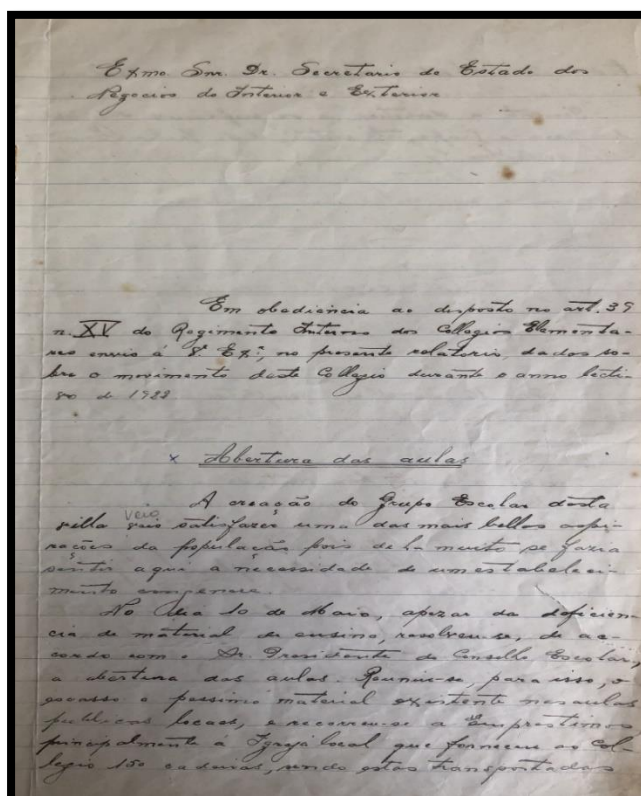 Exmo. Snr. Dr. Secretario do Estado dos
Negocios do Interior e Exterior
Em obediencia ao disposto no art. 39
n. XV do Regimento Interno dos Collegios Elementa-
res envio á Vª Exª, no presente relatorio, dados so-
bre o movimento deste Collegio durante o anno lecti-
vo de 1922
x Abertura das aulas
A creação do Grupo Escolar desta
villa veio satisfazer uma das mais bellas aspi-
rações da população pois de ha muito se fazia
sentir aqui a necessidade de um estabeleci-
mento congenere.
No dia 10 de Maio, apezar da deficien-
cia de material de ensino, resolveu-se, de ac-
cordo com o Dr. Presidente do Conselho Escolar,
a abertura das aulas. Reuniu-se, para isso, o
escasso e pessimo material existente nas aulas
publicas locaes, e recorreu-se a emprestimos,
principalmente á Igreja local que forneceu ao Col-
legio 150 cadeiras, sendo estas transportadas